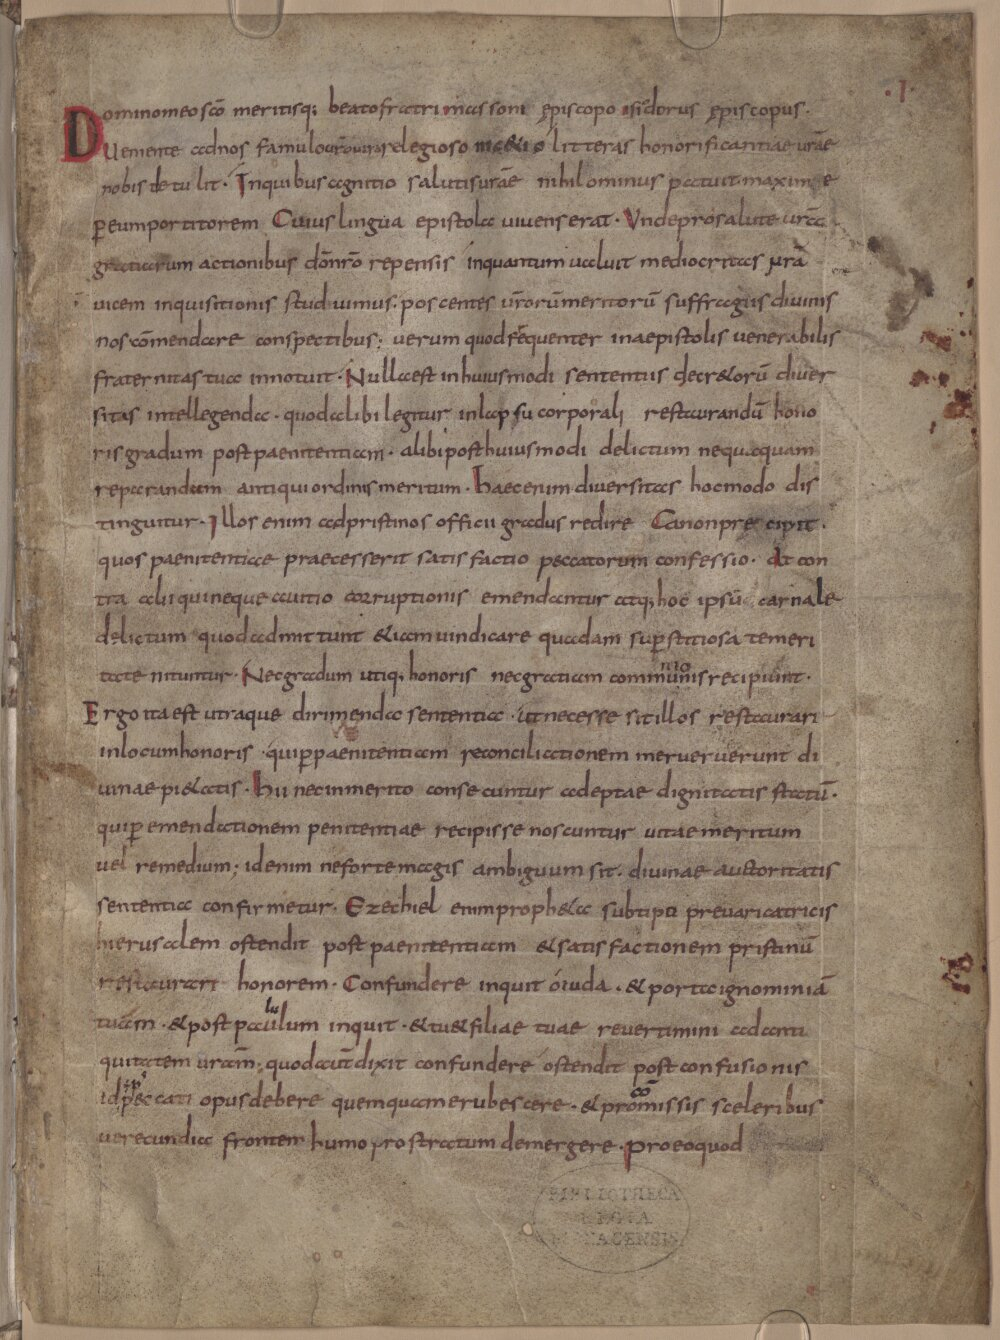 ·I·
Domino meo sc̄o meritisq; beato fratri massoni ępiscopo isidorus ępiscopus.
Veniente ad nos famulo ur̄o uiro relegioso litteras honorificantiae ur̄ae
nobis detulit· Inquibus agnitio salutis ur̄ae nihilominus patuit maxime
p̱ eum portitorem Cuius lingua epistola uiuens erat· Vnde pro salute ur̄a
gratiarum actionibus dōnr̄o repensis inquantum ualuit mediocritas ur̄ā
uicem inquisitionis studuimus; poscentes ur̄orū meritorū suffragiis diuinis
nos cōmendare conspectibus; uerum quod sequenter in aepistolis uenerabilis
fraternitas tua innotuit· Nulla est in huiusmodi sententiis decr&orū diuer
sitas intellegenda· quod alibi legitur in lapsu corporali restaurandū hono
ris gradum post paenitentiam· alibi post huiusmodi delictum nequaquam
reparandum antiqui ordinis meritum· Haec enim diuersitas hoc modo dis
tinguitur· Illos enim ad pristinos officii gradus redire Canon precipit·
quos paenitentiae praecesserit satisfactio peccatorum confessio· At con
tra alii qui neque a uitio corruptionis emendantur atq; hoc ipsū carnale
delictum quod admittunt &iam uindicare quadam sup̱stitiosa temeri
tate nituntur· Nec gradum utiq; honoris nec gratiam communionis recipiunt·
Ergo ita est utraque dirimenda sententia· ut necesse sit illos restaurari
in locum honoris· qui p̱ paenitentiam reconciliationem meruerunt di
uinae pi&atis· Hii nec inmerito consecuntur adeptae dignitatis statū·
qui p̱ emendationem penitentiae recipisse noscuntur uitae meritum
uel remedium; id enim ne forte magis ambiguum sit· diuinae auctoritatis
sententia confirmetur· Ezechiel enim proph&a sub tipo preuaricatricis
hierusalem ostendit post paenitentiam & satisfactionem pristinū
restaurari honorem· Confundere inquit o iuda· & porta ignominiā
tuam· & post paululum inquit· & tu & filiae tuae reuertimini ad anti
quitatem ur̄am; quod aut̄ dixit confundere ostendit post confusionis
id est peccati opus debere quemquam erubescere· & pro commissis sceleribus
uerecundia frontem humo prostratum demergere· pro eo quod
BIBLIOTHECA
REGIA
MONACENSIS